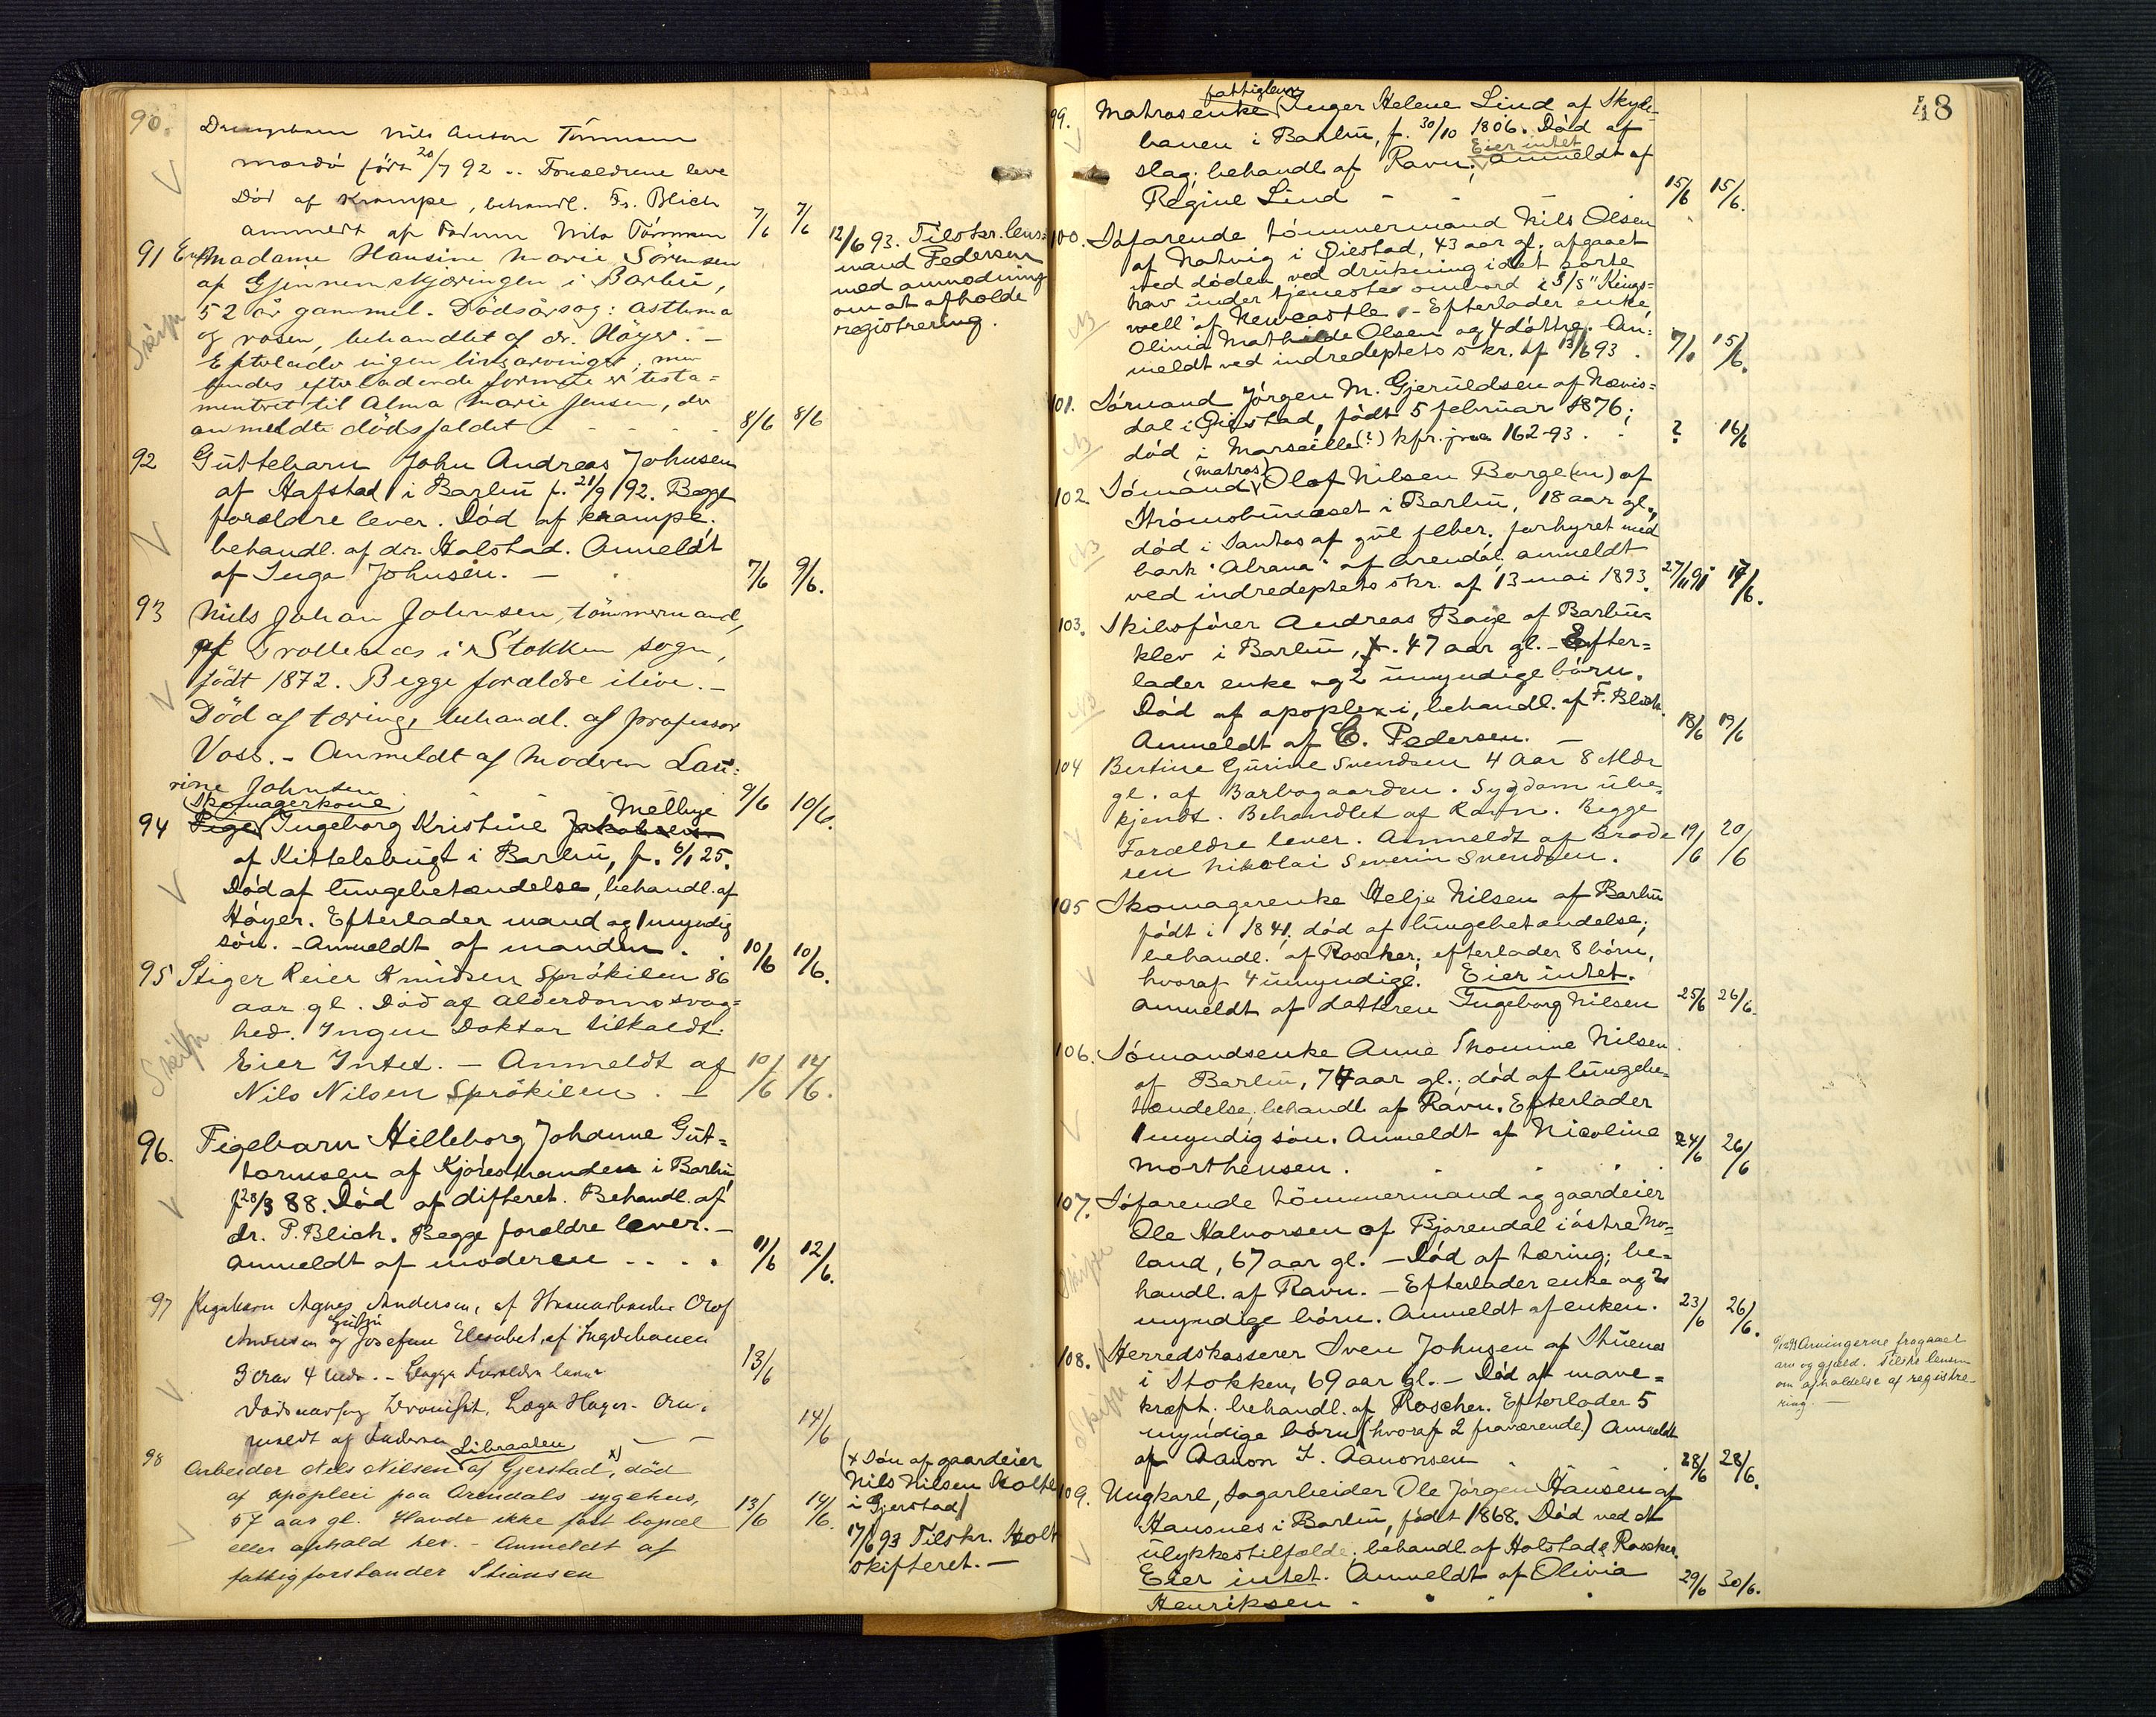 90. Drengebarn Nils Anton Tönnesen
Mardö född 20/7 92 .. Forældrene leve
Död af Krampe, behandl. Fr. Blich
anmeldt af Faderen Nils Tönnesen 7/6 7/6
91 Enkemadame Hansine Marie Sörensen
af Gjennemskjæringen i Barbu,
52 år gammel. Dödsårsag: Asthma
og rosen, behandlet af dr. Höyer. –
Efterlader ingen livsarvinger, men
hendes efterladende formue er testa=
menteret til Alma Marie Jensen, der
anmeldte dödsfaldet - - - - 8/6 8/6
Skifte
12/6 93. Tilskr. lens=
mand Pedersen
med anmodning
om at afholde
registrering.
92 Guttebarn John Andreas Johnsen
af Hafstad i Barbu f. 21/9 92. Begge
forældre lever. Död af krampe;
behandl. af dr. Holstad. Anmeldt
af Inga Johnsen. – 7/6 9/6.
93 Niels Johan Johnsen, tömmermand,
af Trollenæs i Stokken sogn,
född 1872. Begge forældre ilive. –
Död af tæring, behandl. af professor
Voss. – Anmeldt af Moderen Lau=
rine Johnsen - - - 9/6 10/6.
Skomagerkone Melbye
94 Pige Ingeborg Kristine Jakobsen
af Kittelsbugt i Barbu, f. 6/1 25.
Död af lungebetændelse, behandl. af
Höyer. Efterlader mand og 1 myndig
sön. – Anmeldt af manden . . 10/6 10/6.
95 Stiger Reier Knudsen Sprökilen 86
aar gl. Död af Alderdomssvag=
hed. Ingen Doktor tilkaldt.
Eier Intet. – Anmeldt af 10/6 14/6.
Nils Nilsen Sprökilen. –
Skifte
96. Pigebarn Hilleborg Johanne Gut=
tormsen af Kjörestranden i Barbu,
f 28/3 88. Död af difterit. Behandl. af
dr. P. Blich. Begge forældre lever. –
Anmeldt af moderen . . . . 11/6 12/6.
97 Pigebarn Agnes Andersen, af Olaf
Andersen og Josefine Elisabet, af
3 Aar 4 Mdr. – Begge Forældre lever 13/6
Dödsaarsag Læge Höyer. An=
meldt af Faderen — — 14/6
Libraalen
98 Arbeider Nils Nilsen af Gjerstad, x) död
af apoplexi paa Arendals sygehus,
57 aar gl. Havde ikke fast bopæl 13/6 14/6.
eller ophold her. – Anmeldt af
fattigforstander Stiansen
(x Sön af gaardeier
Nils Nilsen Holte
i Gjerstad)
17/6 93 Tilskr. Holt
skifteret. –
48
fattiglem
99. Matrosenke Inger Helene Lind af Skyte=
banen i Barbu, f. 30/10 1806. Död af
Eier intet
slag; behandl. af Ravn; anmeldt af
Regine Lind - - - 15/6 15/6.
100. Söfarende tömmermand Nils Olsen
af Natvig i Öiestad, 43 aar gl. afgaaet
ved döden ved drukning i det sorte
hav under tjeneste ombord i S/S "Kings=
well" af Newcastle. – Efterlader enke
Olivia Mathilde Olsen og 4 döttre. An=
meldt ved indredeptets skr. af 13/6 93. 7/1 15/6.
NB
101. Sömand Jörgen M. Gjeruldsen af Nævis=
dal i Öiestad, född 5 februar 1876;
död i Marseille (?) kfr. jour 162-93. ? 16/6
NB
(matros)
102 Sömand Olaf Nilsen Borge(n) af
Strömsbuneset i Barbu, 18 aar gl.,
död i Santos af gul feber; forhyret med
bark "Alrana" af Arendal; anmeldt
ved indredeptets skr. af 13 mai 1893. 27/11 91 17/6.
NB
103. Skibsförer Andreas Boye af Barbu=
klev i Barbu, 47 aar gl. – Efter=
lader enke og 2 umyndige börn.
Död af apoplexi, behandl. af F. Blich.
Anmeldt af C. Pedersen. – 18/6 19/6
NB
104 Bertine Gurine Svendsen 4 Aar 8 Mdr
gl. af Barbogaarden. Sygdom ube=
kjendt. Behandlet af Ravn. Begge
Forældre lever. Anmeldt af Brode 19/6 20/6
ren Nikolai Severin Svendsen.
105 Skomagerenke Helje Nilsen af Barbu
född i 1841, död af lungebetændelse;
behandl. af Roscher; efterlader 8 börn,
hvoraf 4 umyndige. Eier intet.
Anmeldt af datteren Ingeborg Nilsen 25/6 26/6.
106. Sömandsenke Anne Thomine Nilsen
af Barbu, 74 aar gl.; död af lungebe=
tændelse; behandl. af Ravn. Efterlader
1 myndig sön. Anmeldt af Nicoline
Morthensen. . . . 24/6 26/6
107. Söfarende tömmermand og gaardeier
Ole Halvorsen af Bjorendal i östre Mo=
land, 67 aar gl. – Död af tæring; be=
handl. af Ravn. – Efterlader enke og 2
myndige börn. Anmeldt af enken. 23/6 26/6.
Skifte
108. Herredskasserer Sven Johnsen af Stuenes
i Stokken, 69 aar gl. – Död af mave=
kræft. behandl. af Roscher. Efterlader 5
myndige börn (hvoraf 2 fraværende) Anmeldt
af Aanon T. Aanonsen . . 28/6 28/6.
Skifte
Arvingerne fragaaet
arv og gjæld. Tilskr. lensm
om afholdelse af registre=
ring. —
109. Ungkarl, Sagarbeider Ole Jörgen Hansen af
Hansnes i Barbu, född 1868. Död ved et
ulykkestilfælde; behandl. af Holstad & Roscher.
Eier intet. Anmeldt af Olivia
Henriksen . . . . 29/6 30/6.